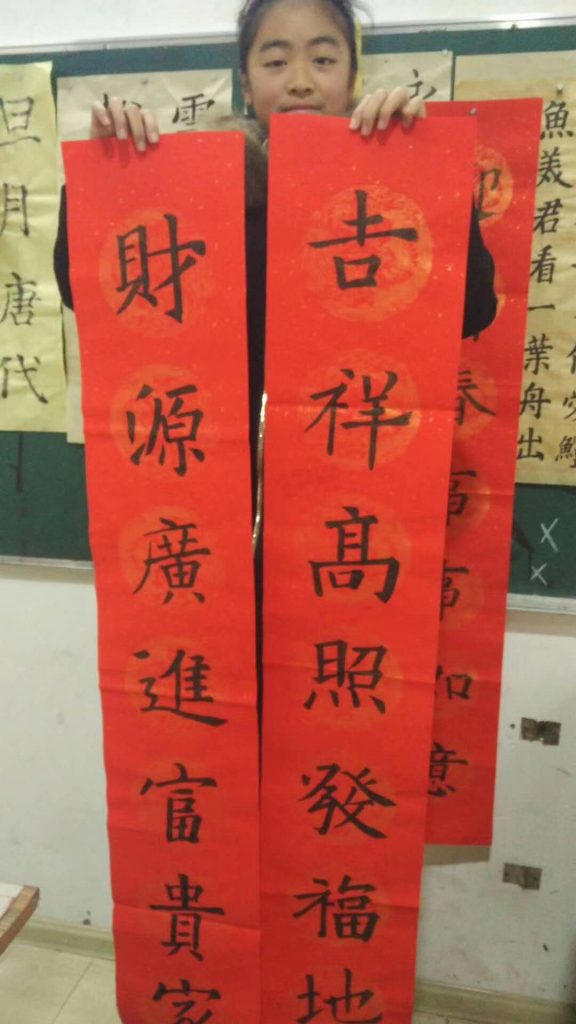 魚美君看一葉舟出
春
如意
吉祥髙照發福地
財源廣進富貴家
雪
旦月唐代